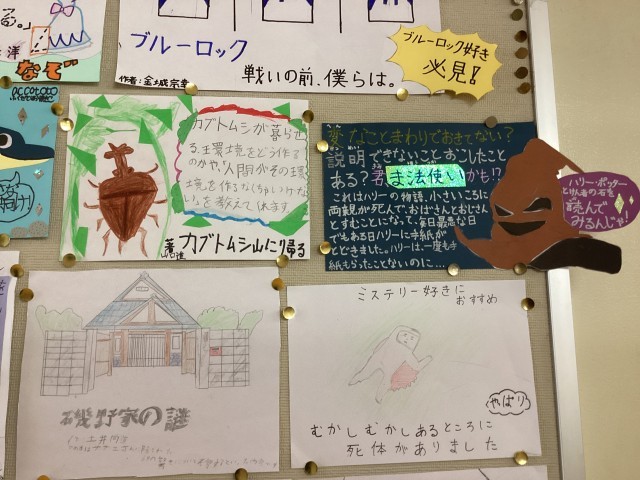 なぞ
ブルーロック
作者:金城宗幸
戦いの前、僕らは。
ブルーロック好き
必見!
カブトムシが暮らせ
る環境をどう作る
のかや、人間がその環
境を作らなくちゃいけな
いを教えて
カブトムシ山に帰る
変なことまわりでおきてない?
説明できないことおこしたこと
ある?
ま法使いかも!?
これはハリーの物語。小さいころに
両親が死んで、おばさんとおじさん
とすむことになって、毎日最悪な日
でもある日ハリーに手紙が
とどきました。ハリーは一度も手
紙もらったことないのに…
ハリー・ポッター
と賢者の石を
読んで
みるんじゃ!
磯野家の謎
ミステリー好きに
おすすめ
やっぱり
むかしむかしあるところに
死体がありました